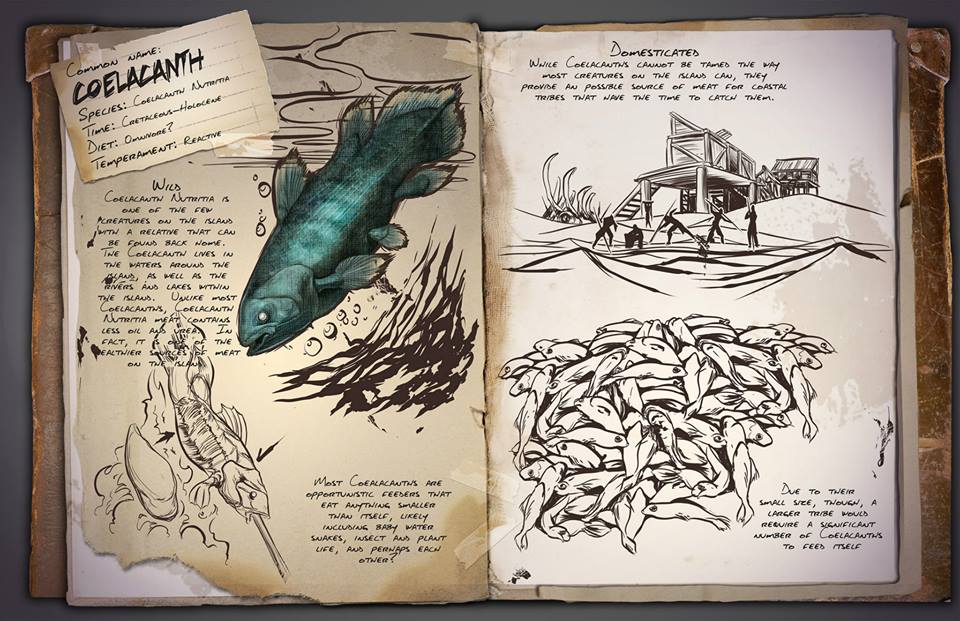 Common name:
Coelacanth
Species: Coelacanth Nutritia
Time: Cretaceous-Holocene
Diet: Omnivore?
Temperament: Reactive
Wild
Coelacanth Nutritia is
one of the few
creatures on the island
with a relative that can
be found back home.
The Coelacanth lives in
the waters around the
island, as well as the
rivers and lakes within
the island. Unlike most
Coelacanths, Coelacanth
Nutritia meat contains
less oil and urea. In
fact, it of the
healthier sources of meat
on the island.
Most Coealacanths are
opportunistic feeders that
eat anything smaller
than itself, likely
including baby water
snakes, insect and plant
life, and perhaps each
other?
Domesticated
While Coelacanths cannot be tamed the way
most creatures on the island can, they
provide an possible source of meat for coastal
tribes that have the time to catch them.
Due to their
small size, though, a
larger tribe would
require a significant
number of Coelacanths
to feed itself